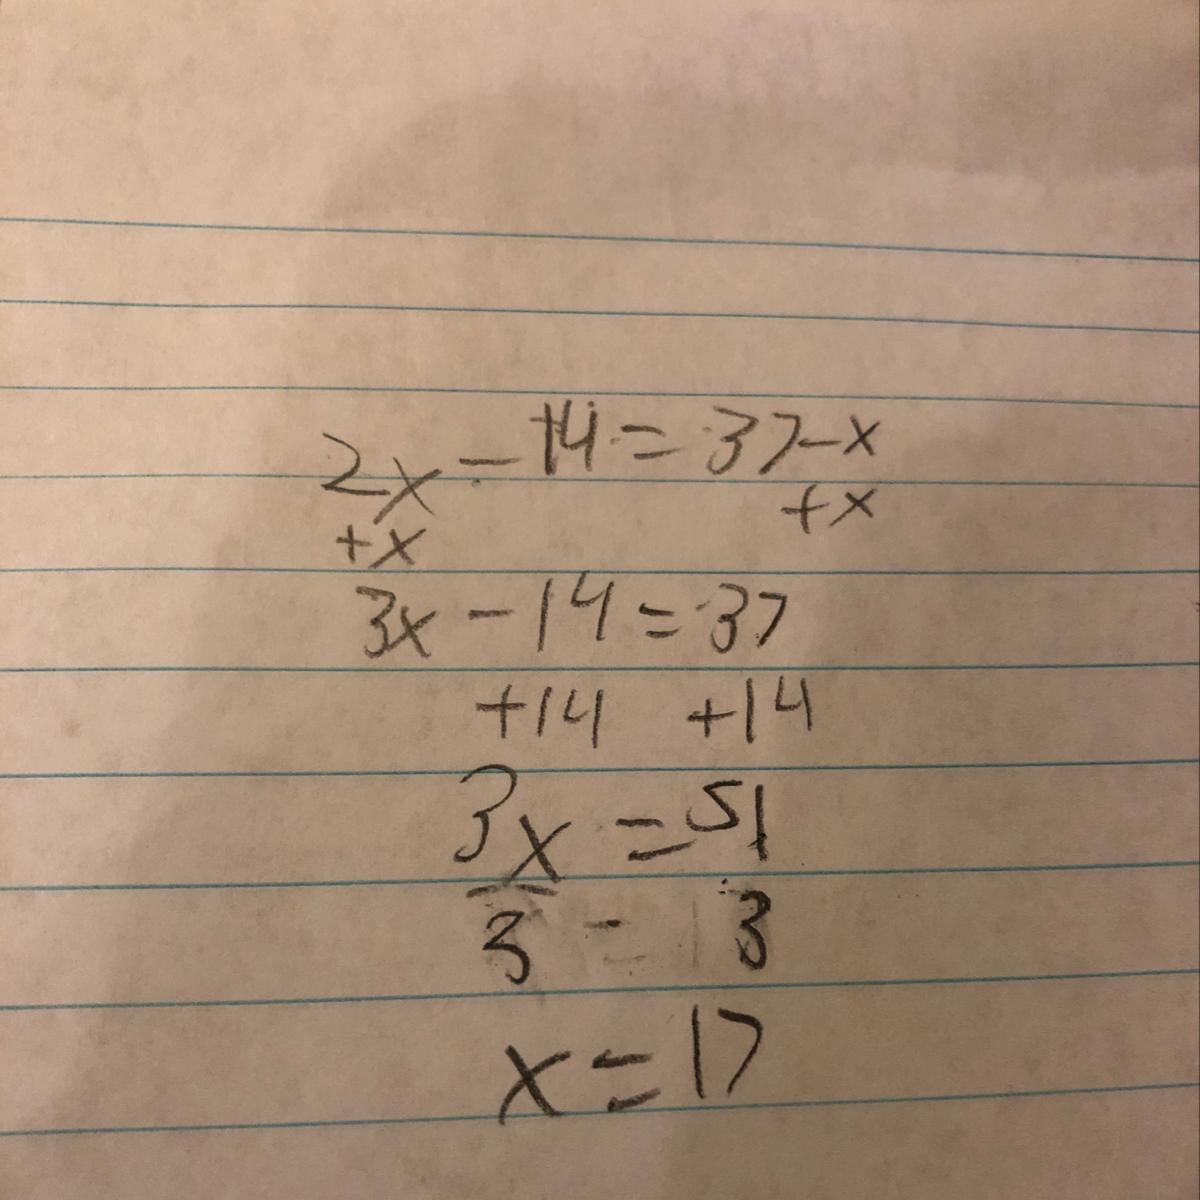 2x - 14 = 37 - x
+x +x
3x - 14 = 37
+14 +14
3x = 51
3 = 3
x = 17